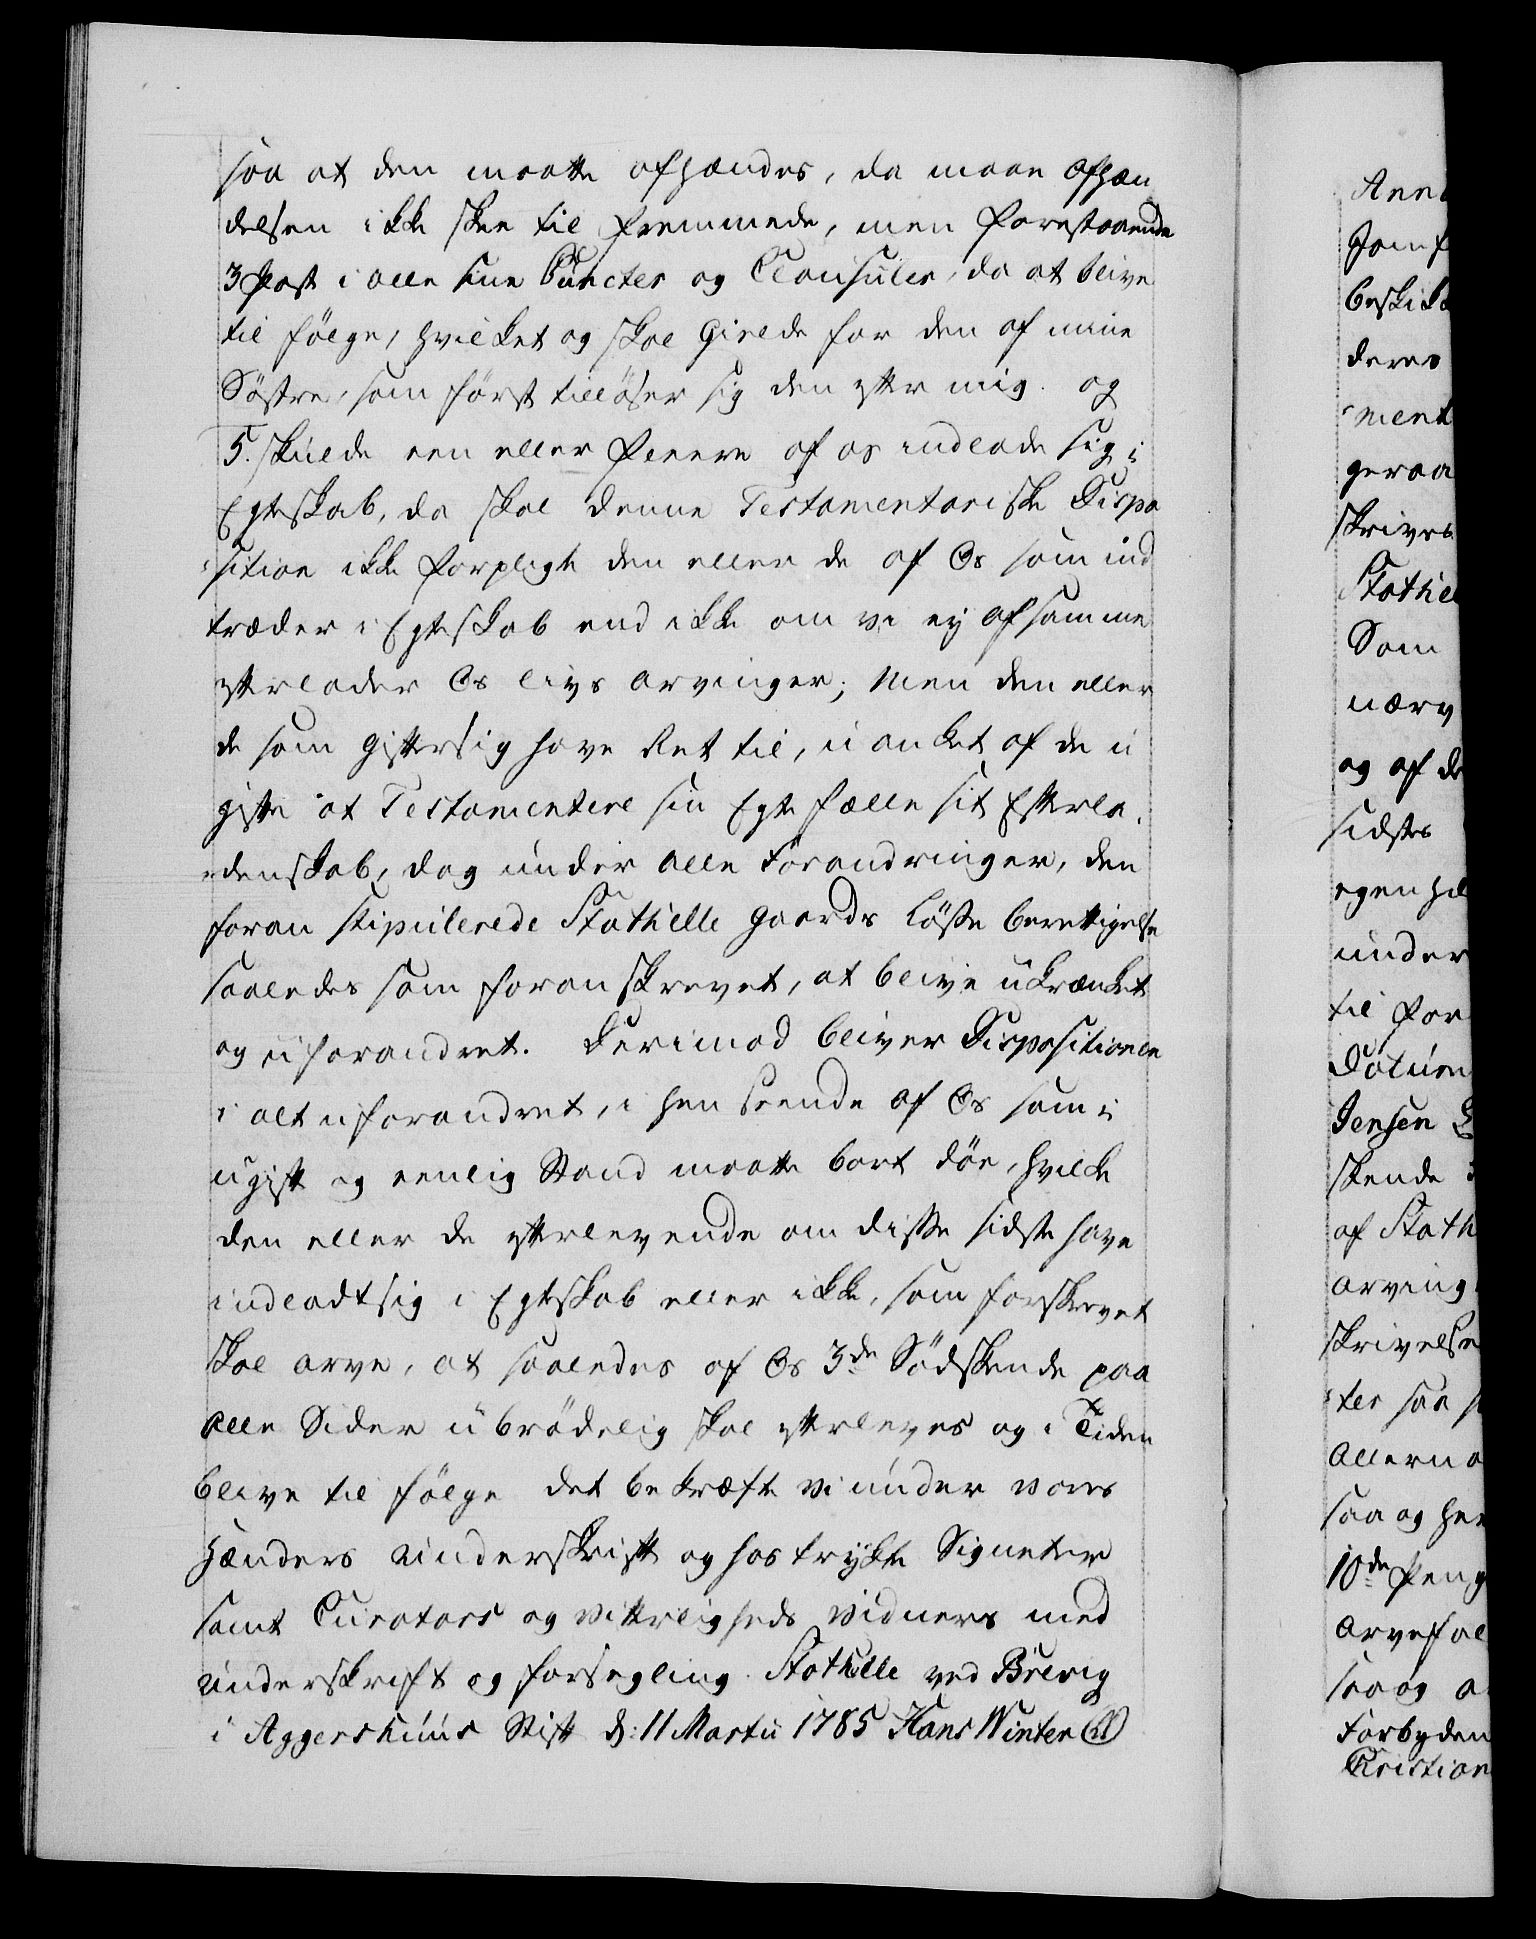 saa at den maatte afhændes, da maae Afhæn
delsen ikke skee til fremmede, men forestaaende
3 Post i alle sine Puncter og Clausuler, da at blive
til følge, hvilket og skal Gielde for den af mine
Søstre, som først tilløser sig den efter mig. og
5. skulde een eller fleere af os indlade sig i
Egteskab, da skal denne Testamentariske Dispo
sition ikke forpligte den eller de af Os som ind
træder i Egteskab end ikke om vi ej af samme
efterlader Os livs Arvinger; Men den eller
de som gifter sig have Ret til, uanket af de u
gifte at Testamentere sin Egtefælle sit Efterla,
denskab, dog under alle Forandringer, den
foran stipulerede Stathelle Gaards Løsse berettigelse
saaledes som foran skrevet, at blive ukrænket
og uforandret. Derimod bliver Dispositionen
i alt uforandret, i hen seende af Os som i
ugift og eenlig Stand maatte bort døe, hvilke
den eller de efterlevende om disse sidste have
indladt sig i Egteskab eller ikke, som forskrevet
skal arve, at saaledes af Os 3de Sødskende paa
alle Sider ubrødelig skal efterleves og i Tiden
blive til følge det bekræfte vi under vores
Hænders Underskrift og hostrykte Signeter
samt Curators og Vitterligheds Vidners med
underskrift og forsegling. Stathelle ved Brevig
i Aggershuus Stift d: 11 Martii 1785 Hans Winter
Anna
Jomf
beskik
deres
ment
geraa
skrives
Stathel
Som
nærv
og af de
sidstes
egenhæ
under
til for
Datum
Jensen
skende
af Stath
Arving
skrivelse
ter saa
Allerna
saa og her
10de Peng
Arvefal
saa og a
Forbyden
Christian